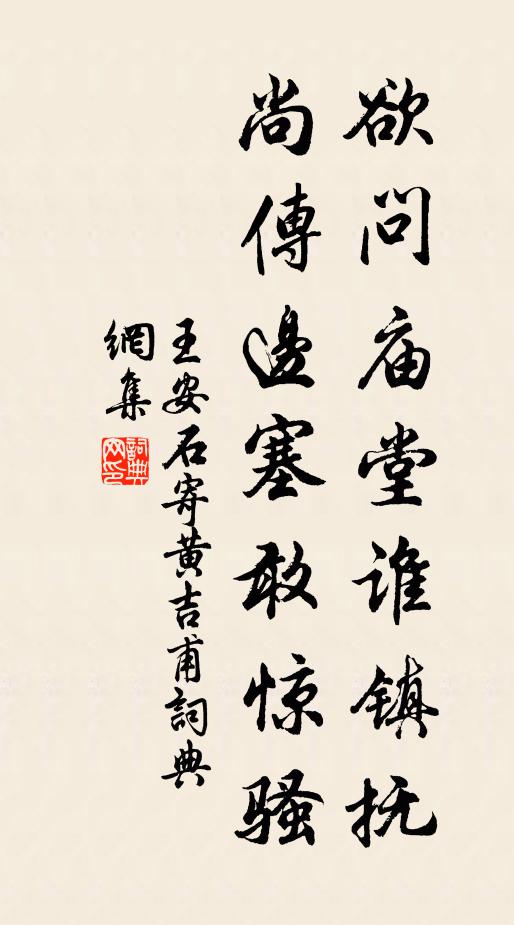 欲问庙堂谁镇抚
尚傳邊塞敢惊骚
王安石寄黄吉甫詞典
網集
詞典网印